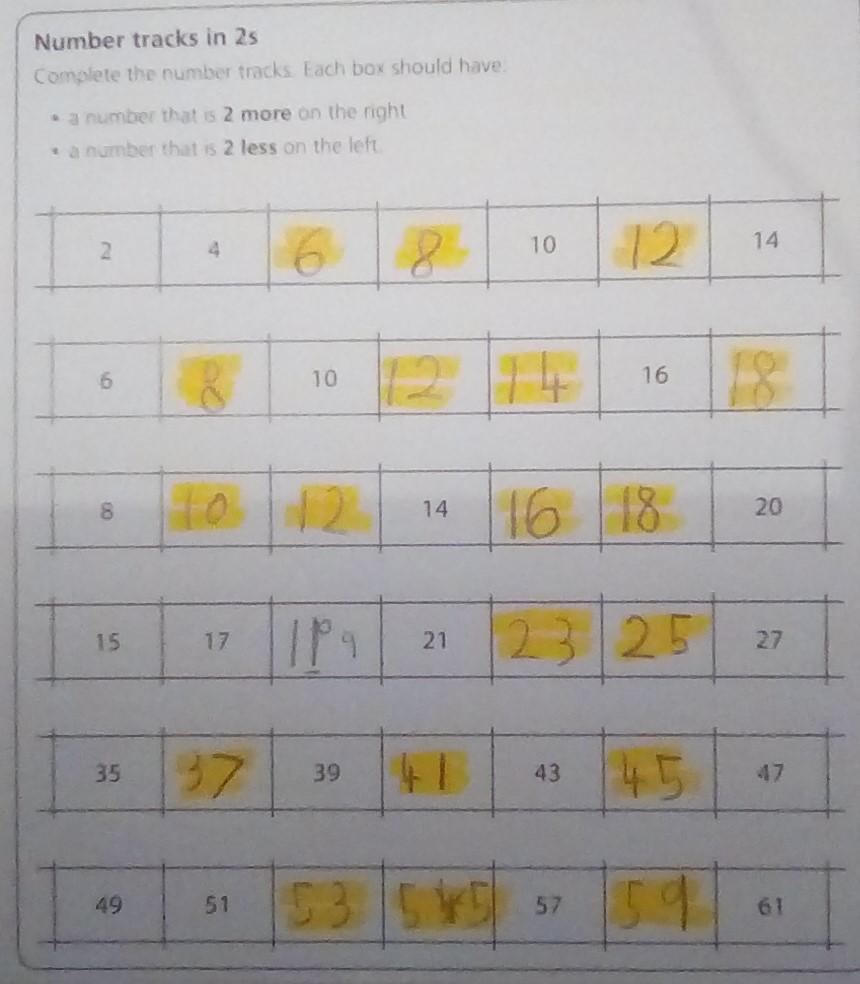 Number tracks in 2s
Complete the number tracks. Each box should have:
• a number that is 2 more on the right
• a number that is 2 less on the left.
2 4 6 8 10 12 14
6 8 10 12 14 16 18
8 10 12 14 16 18 20
15 17 21 23 25 27
35 37 39 41 43 45 47
49 51 53 57 59 61